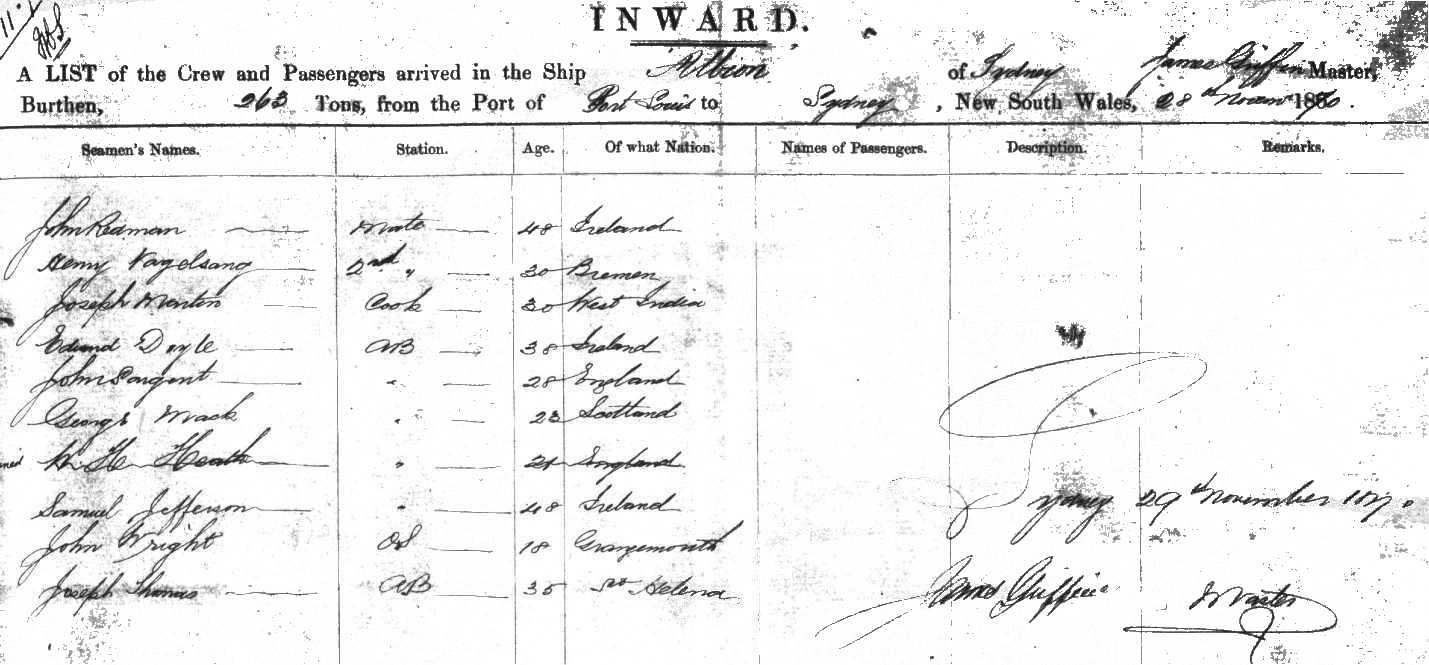 INWARD.
A LIST of the Crew and Passengers arrived in the Ship Albion of Sydney James Griffin Master,
Burthen, 263 Tons, from the Port of Port Louis to Sydney, New South Wales, 28th Novemr 1870.
Seamen's Names. Station. Age. Of what Nation. Names of Passengers. Description. Remarks.
John Redman Mate 48 Ireland
Henry Vagelsang 2nd " 30 Bremen
Joseph Martin Cook 30 West India
Edward Doyle AB 38 Ireland
John Sargent " 28 England
George Mack " 23 Scotland
W. H. Heath " 21 England
Samuel Jefferson " 48 Ireland
Sydney 29th November 1870
John Wright OS 18 Grangemouth
Joseph Thomas AB 35 St Helena
James Griffin Master